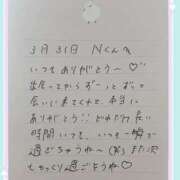 3月31日 Nくんへ
いつもありがとう〜♡
出会ってからずーっとずって
会いに来てくれて、本当に
ありがとう!!どれだけ長い
時間いても、いつも一瞬で
過ぎちゃうね〜(笑)また次
もゆっくり過ごそうね♡